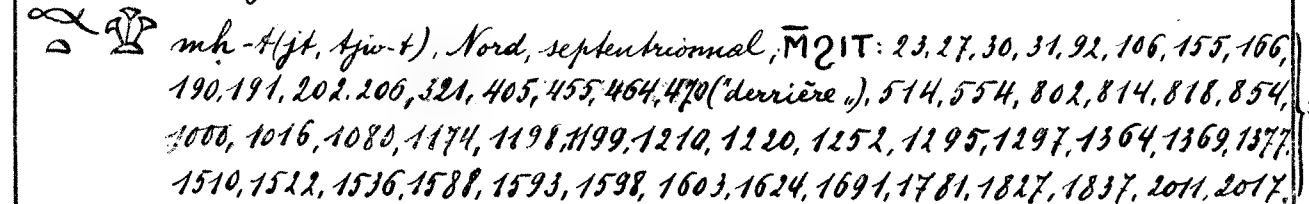 mḥ-t(jt, tjw-t), Nord, septentrionnal, ⲘϨⲒⲦ: 23, 27, 30, 31, 92, 106, 155, 166,
190, 191, 202. 206, 321, 405, 455, 464, 470 ("derrière„), 514, 554, 802, 814, 818, 854,
1000, 1016, 1080, 1174, 1198, 1199, 1210, 1220, 1252, 1295, 1297, 1364, 1369, 1377.
1510, 1522, 1536, 1588, 1593, 1598, 1603, 1624, 1691, 1781, 1827, 1837, 2011, 2017.